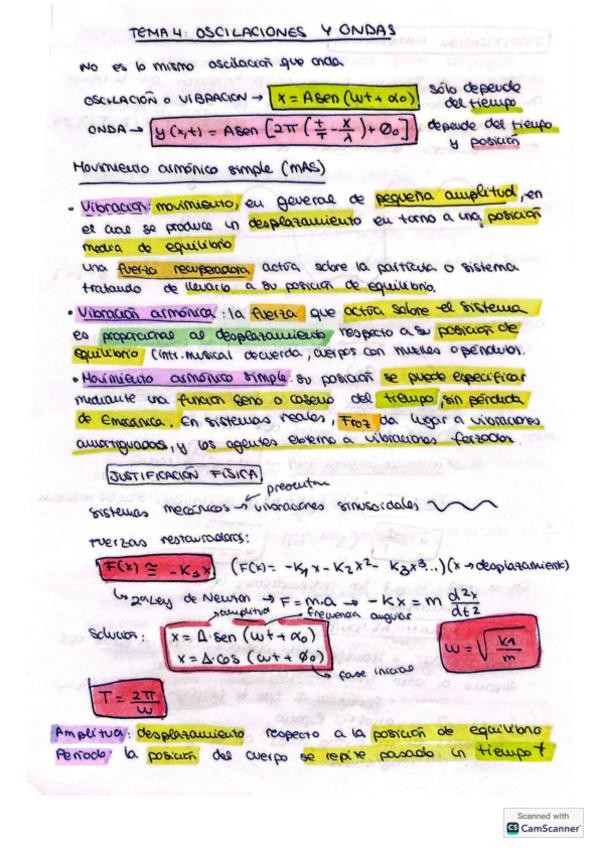 TEMA 4: OSCILACIONES Y ONDAS
No es lo mismo oscilación que onda
OSCILACIÓN O VIBRACIÓN → x = A sen (ωt + α₀) sólo depende del tiempo
ONDA → y (x,t) = A sen [2π (t/T - x/λ) + Ø₀] depende del tiempo y posición
Movimiento armónico simple (MAS)
• Vibración: movimiento, en general de pequeña amplitud, en
el cual se produce un desplazamiento en torno a una posición
media de equilibrio
Una fuerza recuperadora actúa sobre la partícula o sistema
tratando de llevarlo a su posición de equilibrio.
• Vibración armónica: la fuerza que actúa sobre el sistema
es proporcional al desplazamiento respecto a su posición de
equilibrio (intr. musical de cuerda, cuerpos con muelles o péndulos).
• Movimiento armónico simple: su posición se puede especificar
mediante una función seno o coseno del tiempo, sin pérdida
de Emecánica. En sistemas reales, Froz da lugar a vibraciones
amortiguadas, y los agentes externo a vibraciones forzadas.
JUSTIFICACIÓN FÍSICA
presentan
Sistemas mecánicos → vibraciones sinusoidales
Fuerzas restauradoras:
F(x) ≅ -K₁x (F(x) = -K₁x - K₂x² - K₃x³...) (x → desplazamiento)
↳ 2ª Ley de Newton → F = m.a → -Kx = m d²x/dt²
amplitud frecuencia angular
Solución: x = A · sen (ωt + α₀)
x = A · cos (ωt + Ø₀)
ω = √K₁/m
fase inicial
T = 2π/ω
Amplitud: desplazamiento respecto a la posición de equilibrio
Periodo: la posición del cuerpo se repite pasado un tiempo t
Scanned with
CS CamScanner